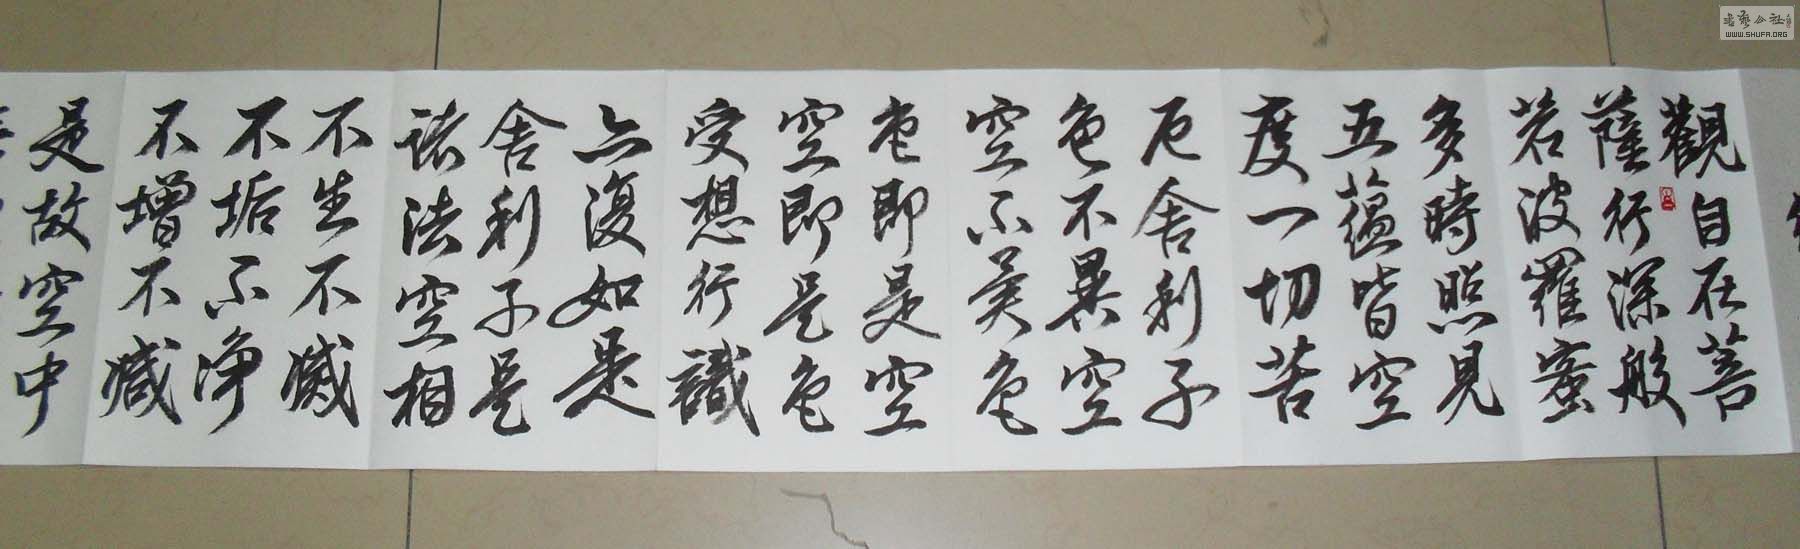 觀自在菩
薩行深般
若波羅蜜
多時照見
五蕴皆空
度一切苦
厄舍利子
色不異空
空不異色
色即是空
空即是色
受想行識
亦復如是
舍利子是
諸法空相
不生不滅
不垢不净
不增不減
是故空中
書藝公社
WWW.SHUFA.ORG